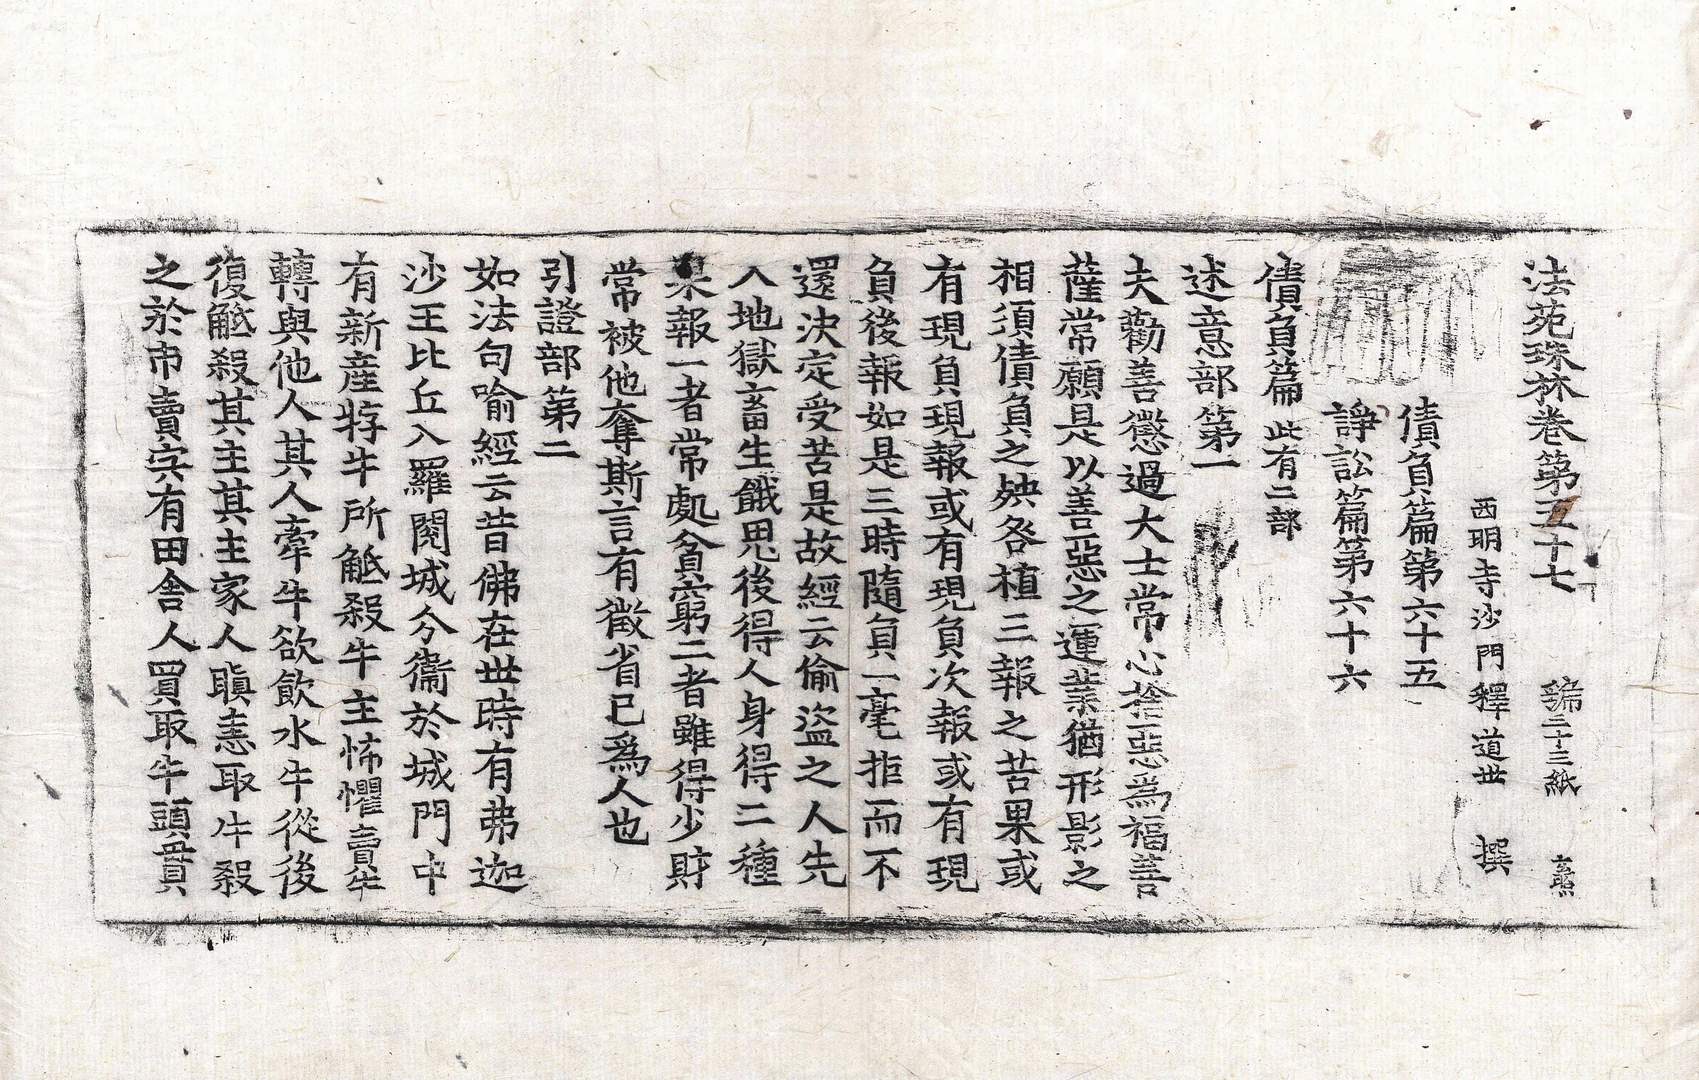 法苑珠林卷第五十七　第三十三紙　𪐴
西明寺沙門釋道世　撰
債負篇第六十五
諍訟篇第六十六
債負篇此有二部
述意部第一
夫勸善懲過大士常心捨惡爲福善
薩常願是以善惡之運業猶形影之
相須債負之殃咎植三報之苦果或
有現負現報或有現負次報或有現
負後報如是三時隨負一毫拒而不
還決定受苦是故經云偷盜之人先
入地獄畜生餓鬼後得人身得二種
果報一者常處貧窮二者雖得少財
常被他奪斯言有徵省已爲人也
引證部第二
如法句喻經云昔佛在世時有弗迦
沙王比丘入羅閱城分衞於城門中
有新產牸牛所觝殺牛主怖懼賣牛
轉與他人其人牽牛欲飲水牛從後
復觝殺其主其主家人瞋恚取牛殺
之於市賣宍有田舍人買取牛頭貫